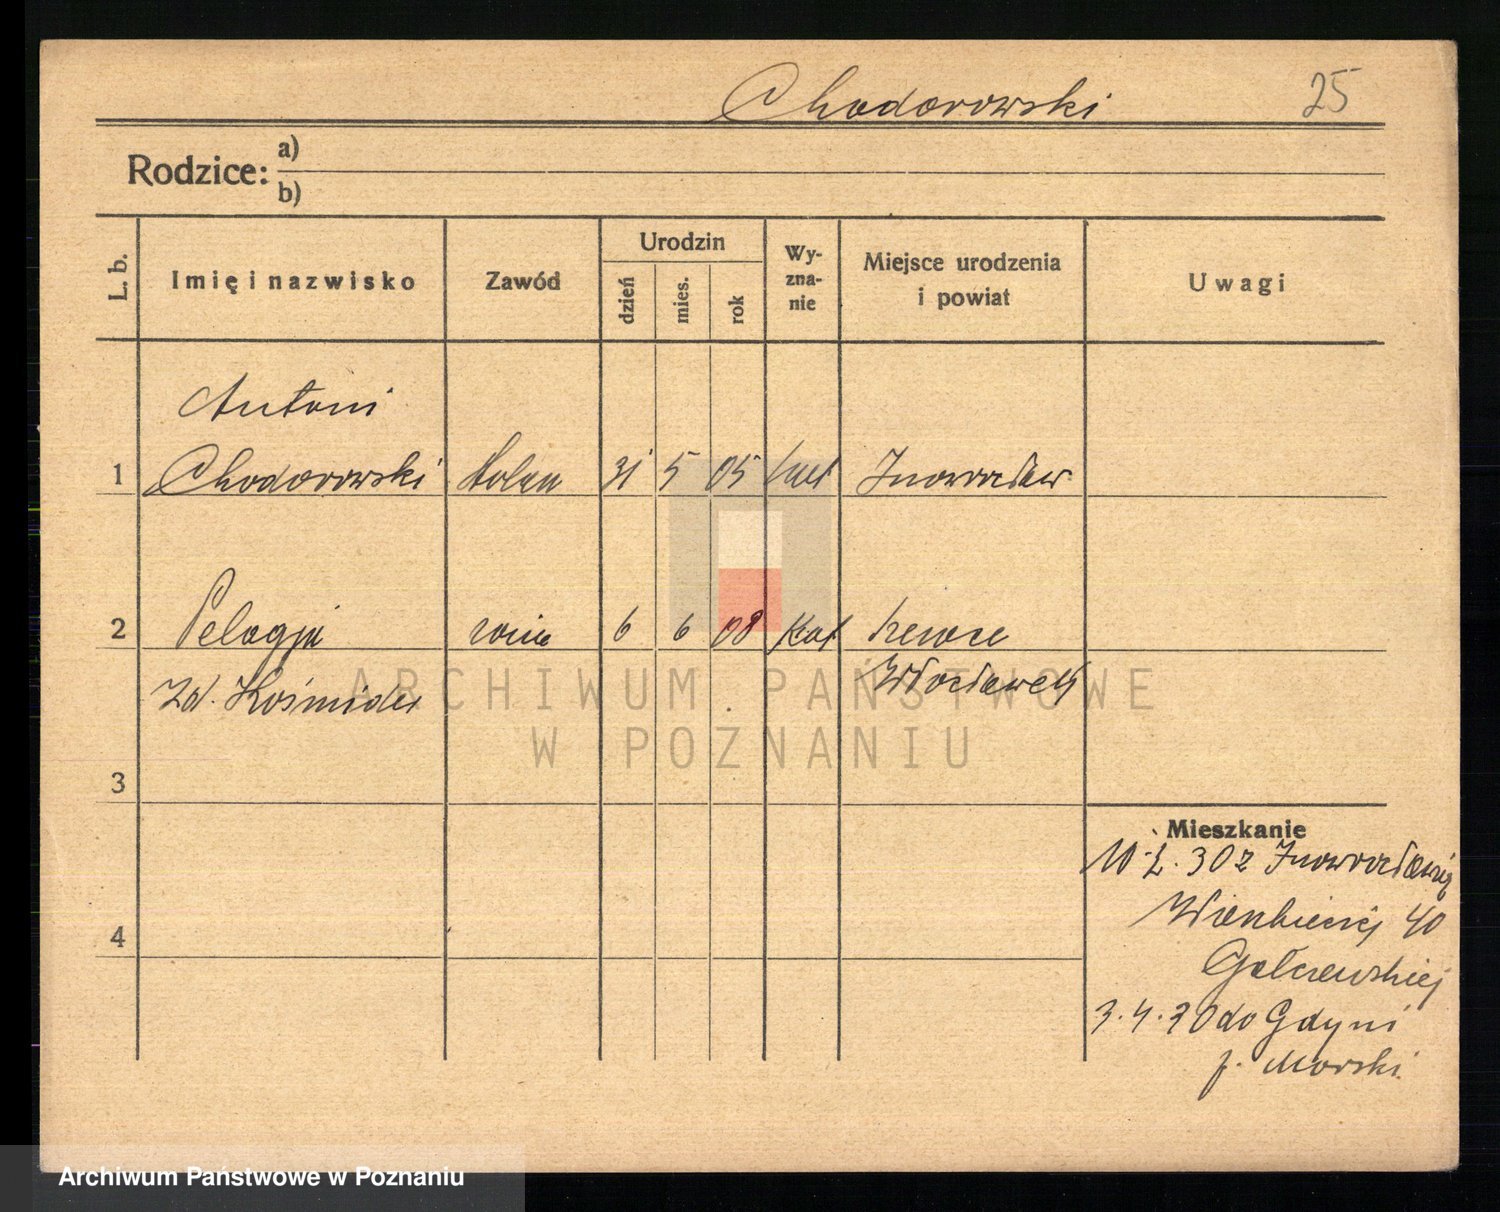 Chodorowski 25
Rodzice: a)
b)
L. b. Imię i nazwisko Zawód Urodzin dzień mies. rok Wyznanie Miejsce urodzenia i powiat Uwagi
Antoni
1 Chodorowski 31 5 05 Inowrocław
2 Pelagja 6 6 08 Kat
Zd. Kośmider Włocławek
3
Mieszkanie
30 z Inowrocławia
4 40
3.4.30 do Gdyni
p. Morski
ARCHIWUM PAŃSTWOWE
W POZNANIU
Archiwum Państwowe w Poznaniu